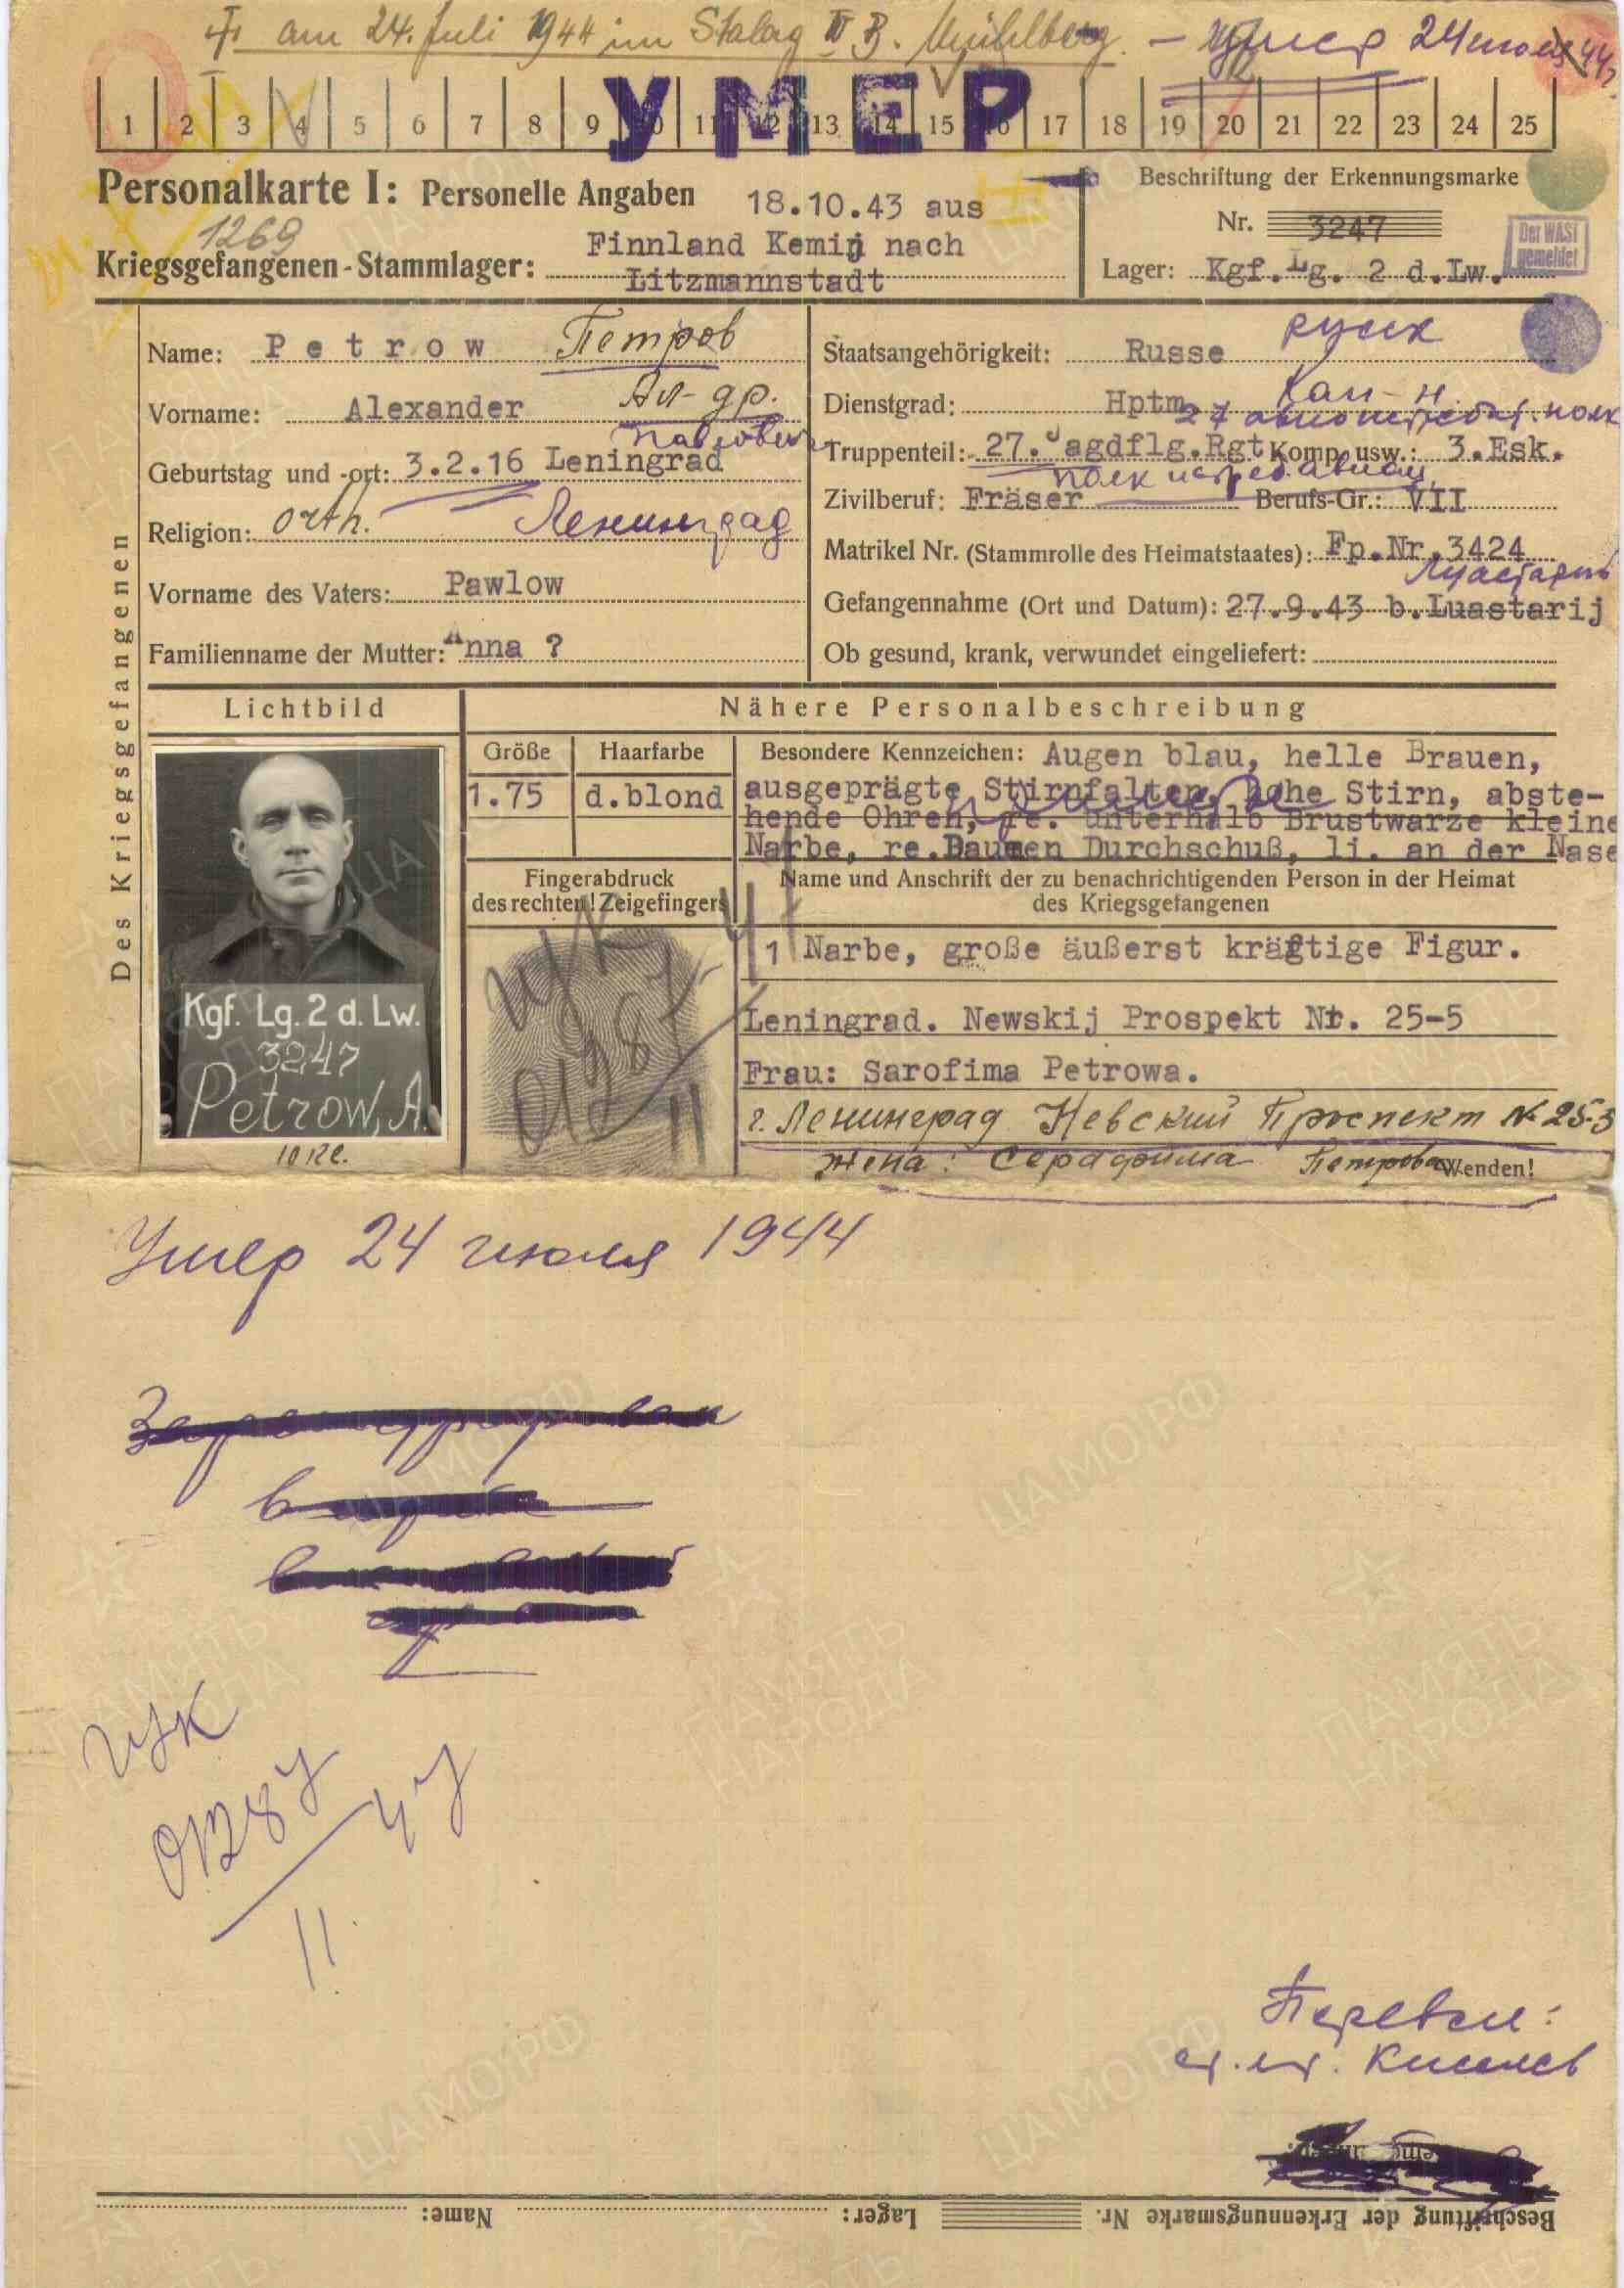 † am 24. Juli 1944 im Stalag IV B. Mühlberg. – умер 24 июля 44 г.
1 2 3 4 5 6 7 8 9 10 11 12 13 14 15 16 17 18 19 20 21 22 23 24 25
УМЕР
Personalkarte I: Personelle Angaben 18.10.43 aus
1269
Kriegsgefangenen-Stammlager: Finnland Kemij nach
Litzmannstadt
Beschriftung der Erkennungsmarke
Nr. 3247
Lager: Kgf.Lg. 2 d.Lw.
Der WASt
gemeldet
Des Kriegsgefangenen
Name: Petrow Петров
Vorname: Alexander Ал-др.
Павлович
Geburtstag und -ort: 3.2.16 Leningrad
Religion: orth. Ленинград
Vorname des Vaters: Pawlow
Familienname der Mutter: Anna ?
Staatsangehörigkeit: Russe русск
Dienstgrad: Hptm. Кап-н
27 авиоистребит. полк
Truppenteil: 27. Jagdflg.Rgt Komp. usw.: 3.Esk.
полк истреб авиац
Zivilberuf: Fräser Berufs-Gr.: VII
Matrikel Nr. (Stammrolle des Heimatstaates): Fp.Nr.3424
Луастарь
Gefangennahme (Ort und Datum): 27.9.43 b.Luastarij
Ob gesund, krank, verwundet eingeliefert:
Lichtbild
Nähere Personalbeschreibung
Größe
1.75
Haarfarbe
d.blond
Besondere Kennzeichen: Augen blau, helle Brauen,
ausgeprägte Stirnfalten, hohe Stirn, abste-
hende Ohren, re. unterhalb Brustwarze kleine
Narbe, re.Daumen Durchschuß, li. an der Nase
Fingerabdruck
des rechten! Zeigefingers
Name und Anschrift der zu benachrichtigenden Person in der Heimat
des Kriegsgefangenen
1 Narbe, große äußerst kräftige Figur.
Leningrad. Newskij Prospekt Nr. 25-5
Frau: Sarofima Petrowa.
г. Ленинград Невский Проспект № 25-3
жена: Серафима Петрова
Wenden!
Kgf. Lg. 2 d. Lw.
3247
Petrow, A.
Умер 24 июля 1944
Перевел:
ст. лт. Киселев
Beschriftung der Erkennungsmarke Nr. Lager: Name:
ЦАМО РФ
ПАМЯТЬ
НАРОДА